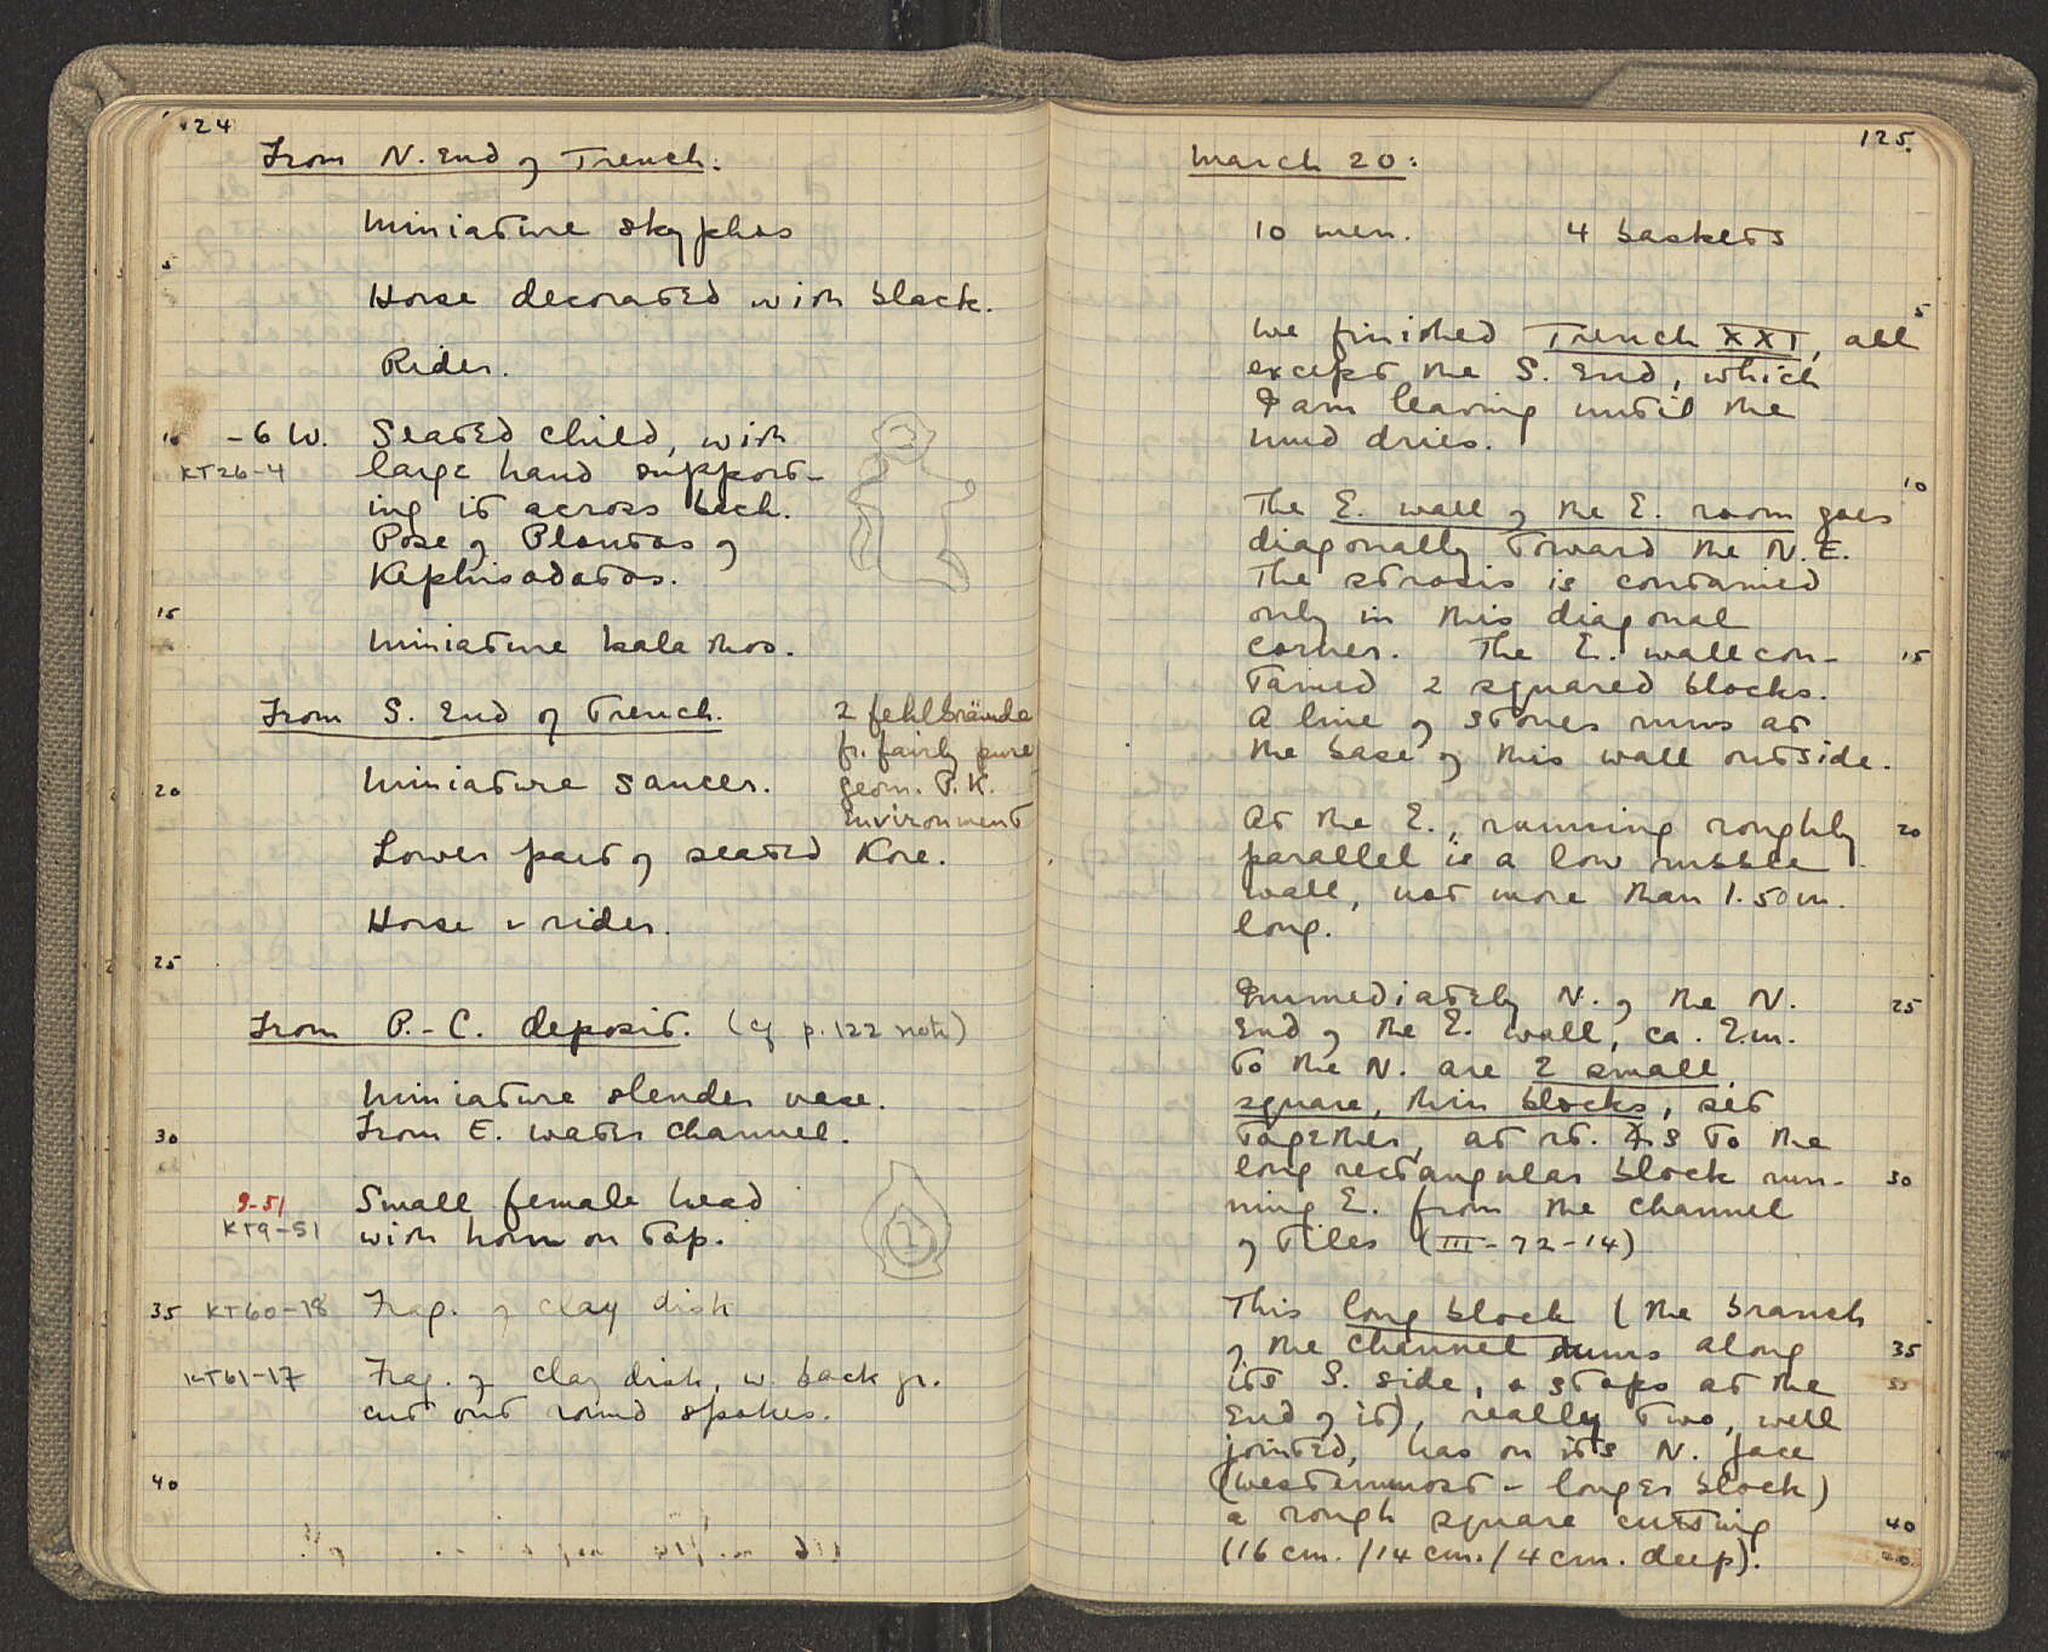 124
From N. End of Trench:
Miniature skyphos
5
Horse decorated with black.
Rider.
10 -6 W. Seated child, with
KT26-4 large hand support-
ing it across back.
Pose of Ploutos of
Kephisodotos.
15
Miniature kalathos.
From S. End of Trench.
2 fehlbrände
fr. fairly pure
geom. P.K.
Environment
20 Miniature saucer.
Lower part of seated Kore.
Horse & rider.
25
From P.-C. deposit. (cf p. 122 note)
Miniature slender vase.
30 From E. water channel.
9-51 Small female head
KT9-51 with horn on top.
35 KT60-18 Frag. of clay disk
KT61-17 Frag. of clay disk, w. back gr.
cut out round spokes.
40
125.
March 20:
10 men. 4 baskets
5
We finished Trench XXI, all
except the S. End, which
I am leaving until the
mud dries.
10
The E. wall of the E. room goes
diagonally toward the N.E.
The strosis is contained
only in this diagonal
corner. The E. wall con- 15
tained 2 squared blocks.
A line of stones runs at
the base of this wall outside.
At the E., running roughly 20
parallel is a low rubble
wall, not more than 1.50 m.
long.
Immediately N. of the N. 25
End of the E. wall, ca. 2.m.
to the N. are 2 small,
square, thin blocks, set
together, at rt. ∠s to the
long rectangular block run- 30
ning E. from the channel
of tiles (III-72-14)
This long block (the branch
of the channel runs along 35
its S. side, & stops at the
End of it), really two, well
jointed, has on its N. face
(westernmost - longer block)
a rough square cutting 40
(16 cm. /14 cm. / 4 cm. deep).